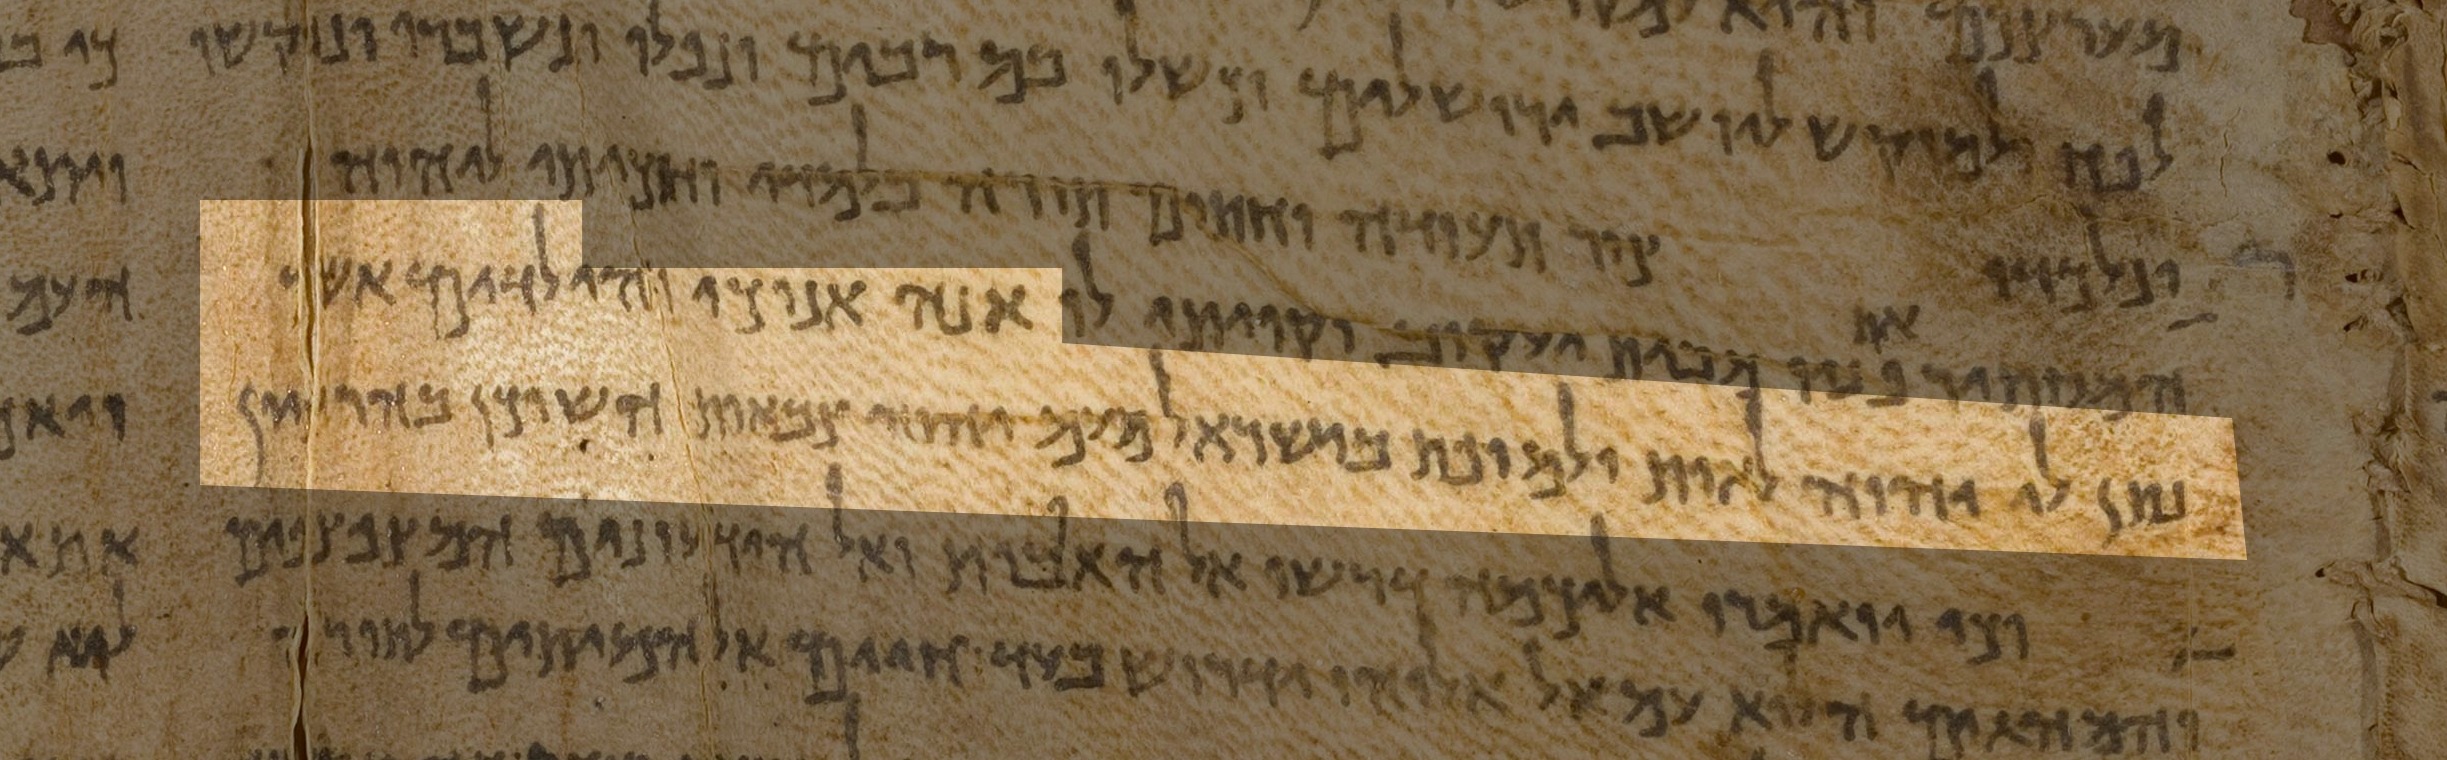 לפח למוקש ליושב ירושלים וכשלו בם רבים ונפלו ונשברו ונוקשו
ונלכדו צור תעודה וחתום תורה בלמדי וחכיתי ליהוה
המסתיר את פניו מבית יעקוב וקויתי לו הנה אנוכי והילדים אשר
נתן לי יהוה לאות ולמופת בישראל מעם יהוה צבאות השוכן בהר ציון
וכי יואמרו אליכמה דרשו אל האבות ואל הידעונים המצפצפים
והמהגים הלוא עם אל אלוהיו ידרוש בעד החיים אל המיתים לתורה